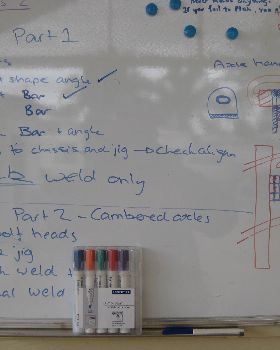 If you fail to Plan, you
Part 1
Axle han
shape angle ✓
Bar ✓
Bar
Bar + angle
to chassis and jig → check align
weld only
Part 2 - Cambered axles
olt heads
jig
weld
al weld